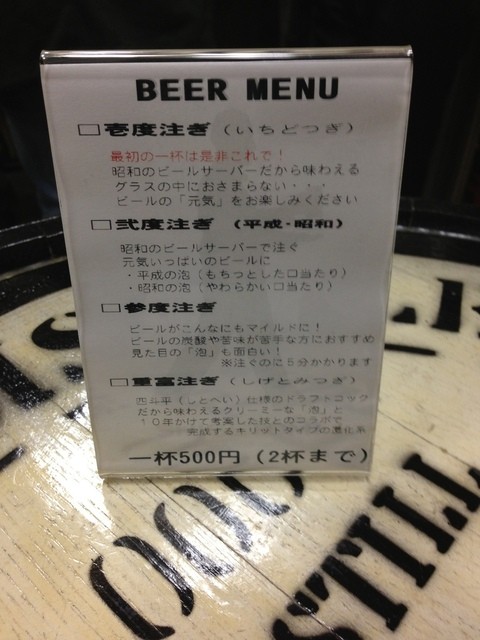 BEER MENU
□壱度注ぎ（いちどつぎ）
最初の一杯は是非これで！
昭和のビールサーバーだから味わえる
グラスの中におさまらない・・・
ビールの「元気」をお楽しみください
□弐度注ぎ （平成・昭和）
昭和のビールサーバーで注ぐ
元気いっぱいのビールに
・平成の泡（もちっとした口当たり）
・昭和の泡（やわらかい口当たり）
□参度注ぎ
ビールがこんなにもマイルドに！
ビールの炭酸や苦味が苦手な方におすすめ
見た目の「泡」も面白い！
※注ぐのに５分かかります
□重富注ぎ（しげとみつぎ）
四斗平（しとへい）仕様のドラフトコック
だから味わえるクリーミーな「泡」と
１０年かけて考案した技とのコラボで
完成するキリットタイプの進化系
一杯500円（2杯まで）
STILL